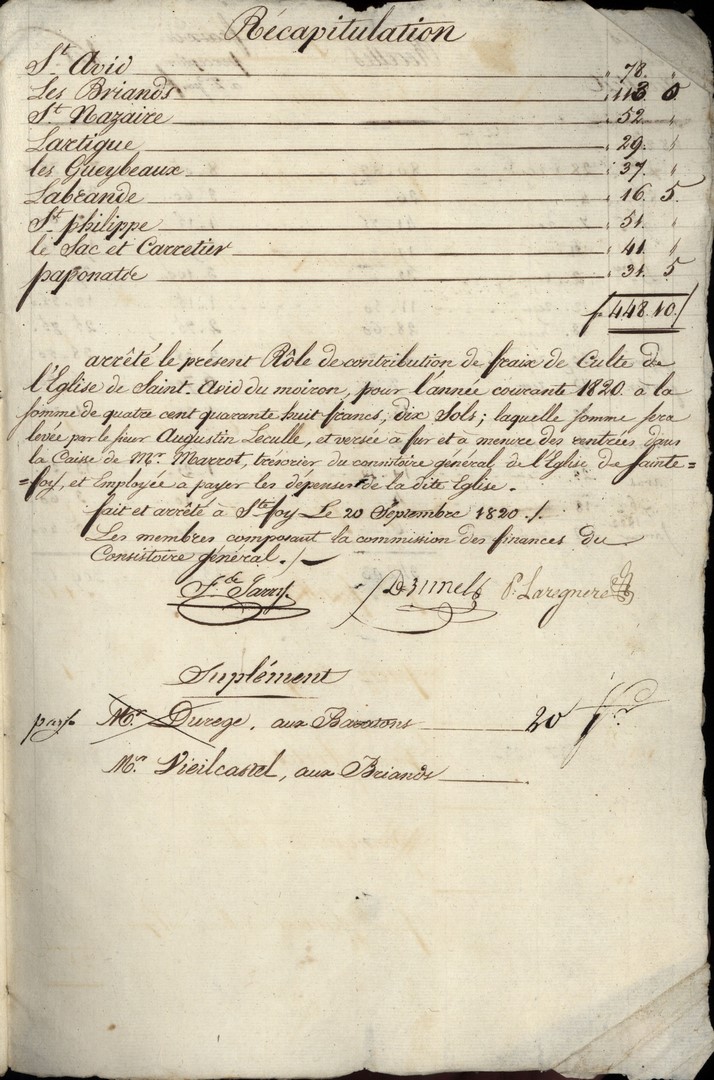 Récapitulation
St Avid 78. "
Les Briands 113. 0
St Nazaire 52. "
Lartigue 29. "
les Gueybeaux 37. "
Labrande 16. 5.
St philippe 51. "
le Sac et Carretier 41. "
paponatte 31. 5
f 448. 10./
arrêté le présent Rôle de contribution de fraix de Culte de
l'Eglise de Saint-Avid du moiron, pour l'année courante 1820. à la
somme de quatre cent quarante huit francs, dix Sols; laquelle somme sera
levée par le sieur Augustin Leculle, et versée à fur et à mesure des rentrées dans
la Caisse de Mr. Marrot, trésorier du consistoire général, de l'Eglise de Sainte=
=foy, et Employée à payer les dépenses de la dite Eglise.
fait et arrêté à Ste foy Le 20 Septembre 1820./.
Les membres composant la commission des finances du
Consistoire général./.
P. Larignere
Suplément
payé Mr. Durege, aux Baratons 20 f
Mr. Vieilcastel, aux Briands